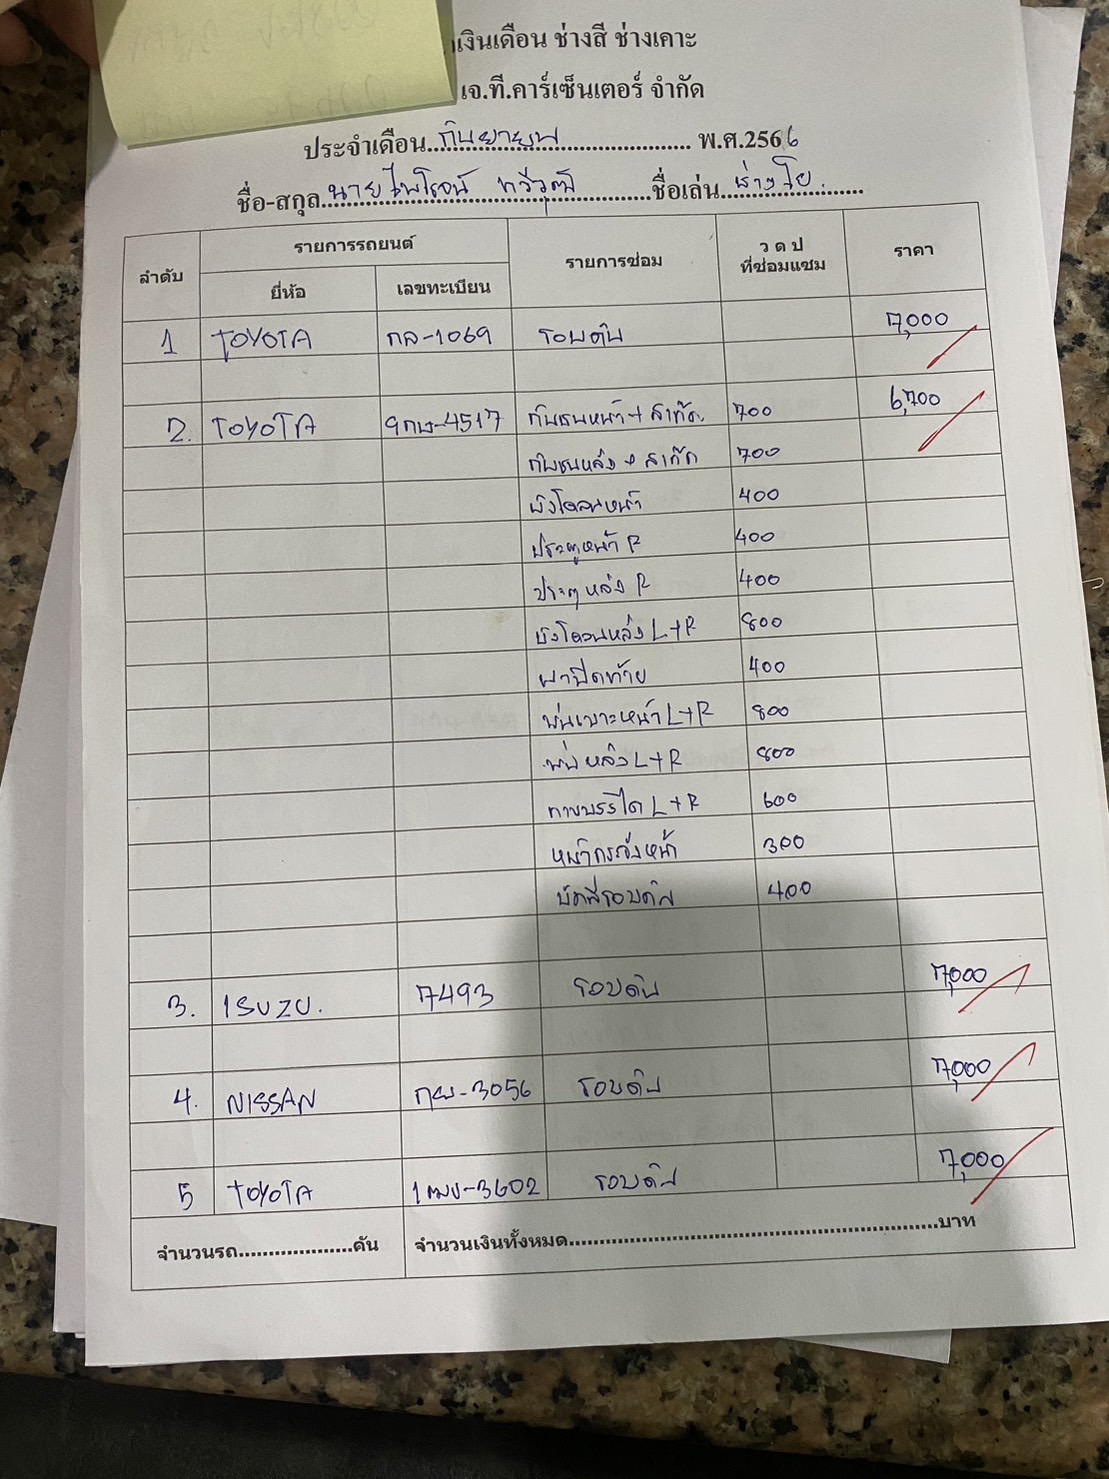 เงินเดือน ช่างสี ช่างเคาะ
เจ.ที.คาร์เซ็นเตอร์ จำกัด
ประจำเดือน..กันยายน........................ พ.ศ.2566
ชื่อ-สกุล..นายไพโรจน์ ทวีวุฒิ..............ชื่อเล่น..ช่างโย.......
ลำดับ รายการรถยนต์ รายการซ่อม ว ด ป ที่ซ่อมแซม ราคา
ยี่ห้อ เลขทะเบียน
1 TOYOTA กล-1069 รอบคัน 7,000
2. TOYOTA 9กษ-4517 กันชนหน้า+สเกิ๊ต. 700 6,700
กันชนหลัง+สเกิ๊ต 700
บังโคลนหน้า 400
ประตูหน้า R 400
ประตูหลัง R 400
บังโคลนหลัง L+R 800
ฝาปิดท้าย 400
พ่นเบาะหน้า L+R 800
พ่นหลัง L+R 800
กาบบรรได L+R 600
หน้ากระจังหน้า 300
ขัดสีรอบคัน 400
3. ISUZU. 7493 รอบคัน 7,000
4. NISSAN กย-3056 รอบคัน 7,000
5 TOYOTA 1ฒง-3602 รอบคัน 7,000
จำนวนรถ...................คัน จำนวนเงินทั้งหมด..............................................................บาท